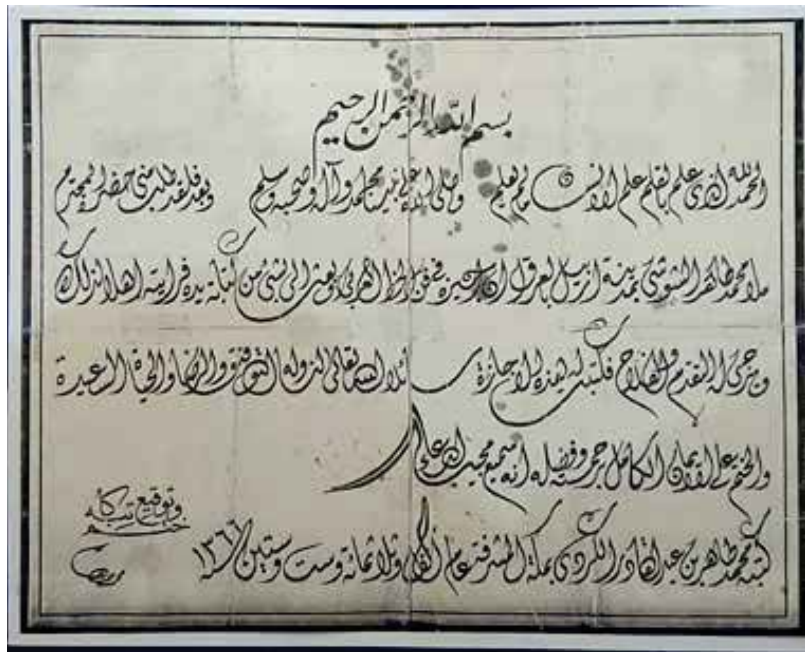 بسم الله الرحمن الرحيم
الحمد لله الذى علم بالقلم علم الانسان ما لم يعلم وصلى الله على نبينا محمد وآله وصحبه وسلم وبعد فلقد طلب منى حضرة المحترم
ملا محمد طاهر الشوشى بمدينة اربيل بالعراق ان اجيزه فى فن الخط العربى وبعث الى بشئ من كتابة يده فرايته اهلا لذلك
ويرجى له التقدم والفلاح فكتبت له بهذه الاجازة سائلا الله تعالى لنا وله التوفيق والرضا والحياة السعيدة
والختم على الايمان الكامل برحمته وفضله انه سميع مجيب
كتبه محمد طاهر بن عبد القادر الكردى بمكة المشرفة عام الف وثلاثمائة وست وستين ١٣٦٦
وتوقيع
ختم